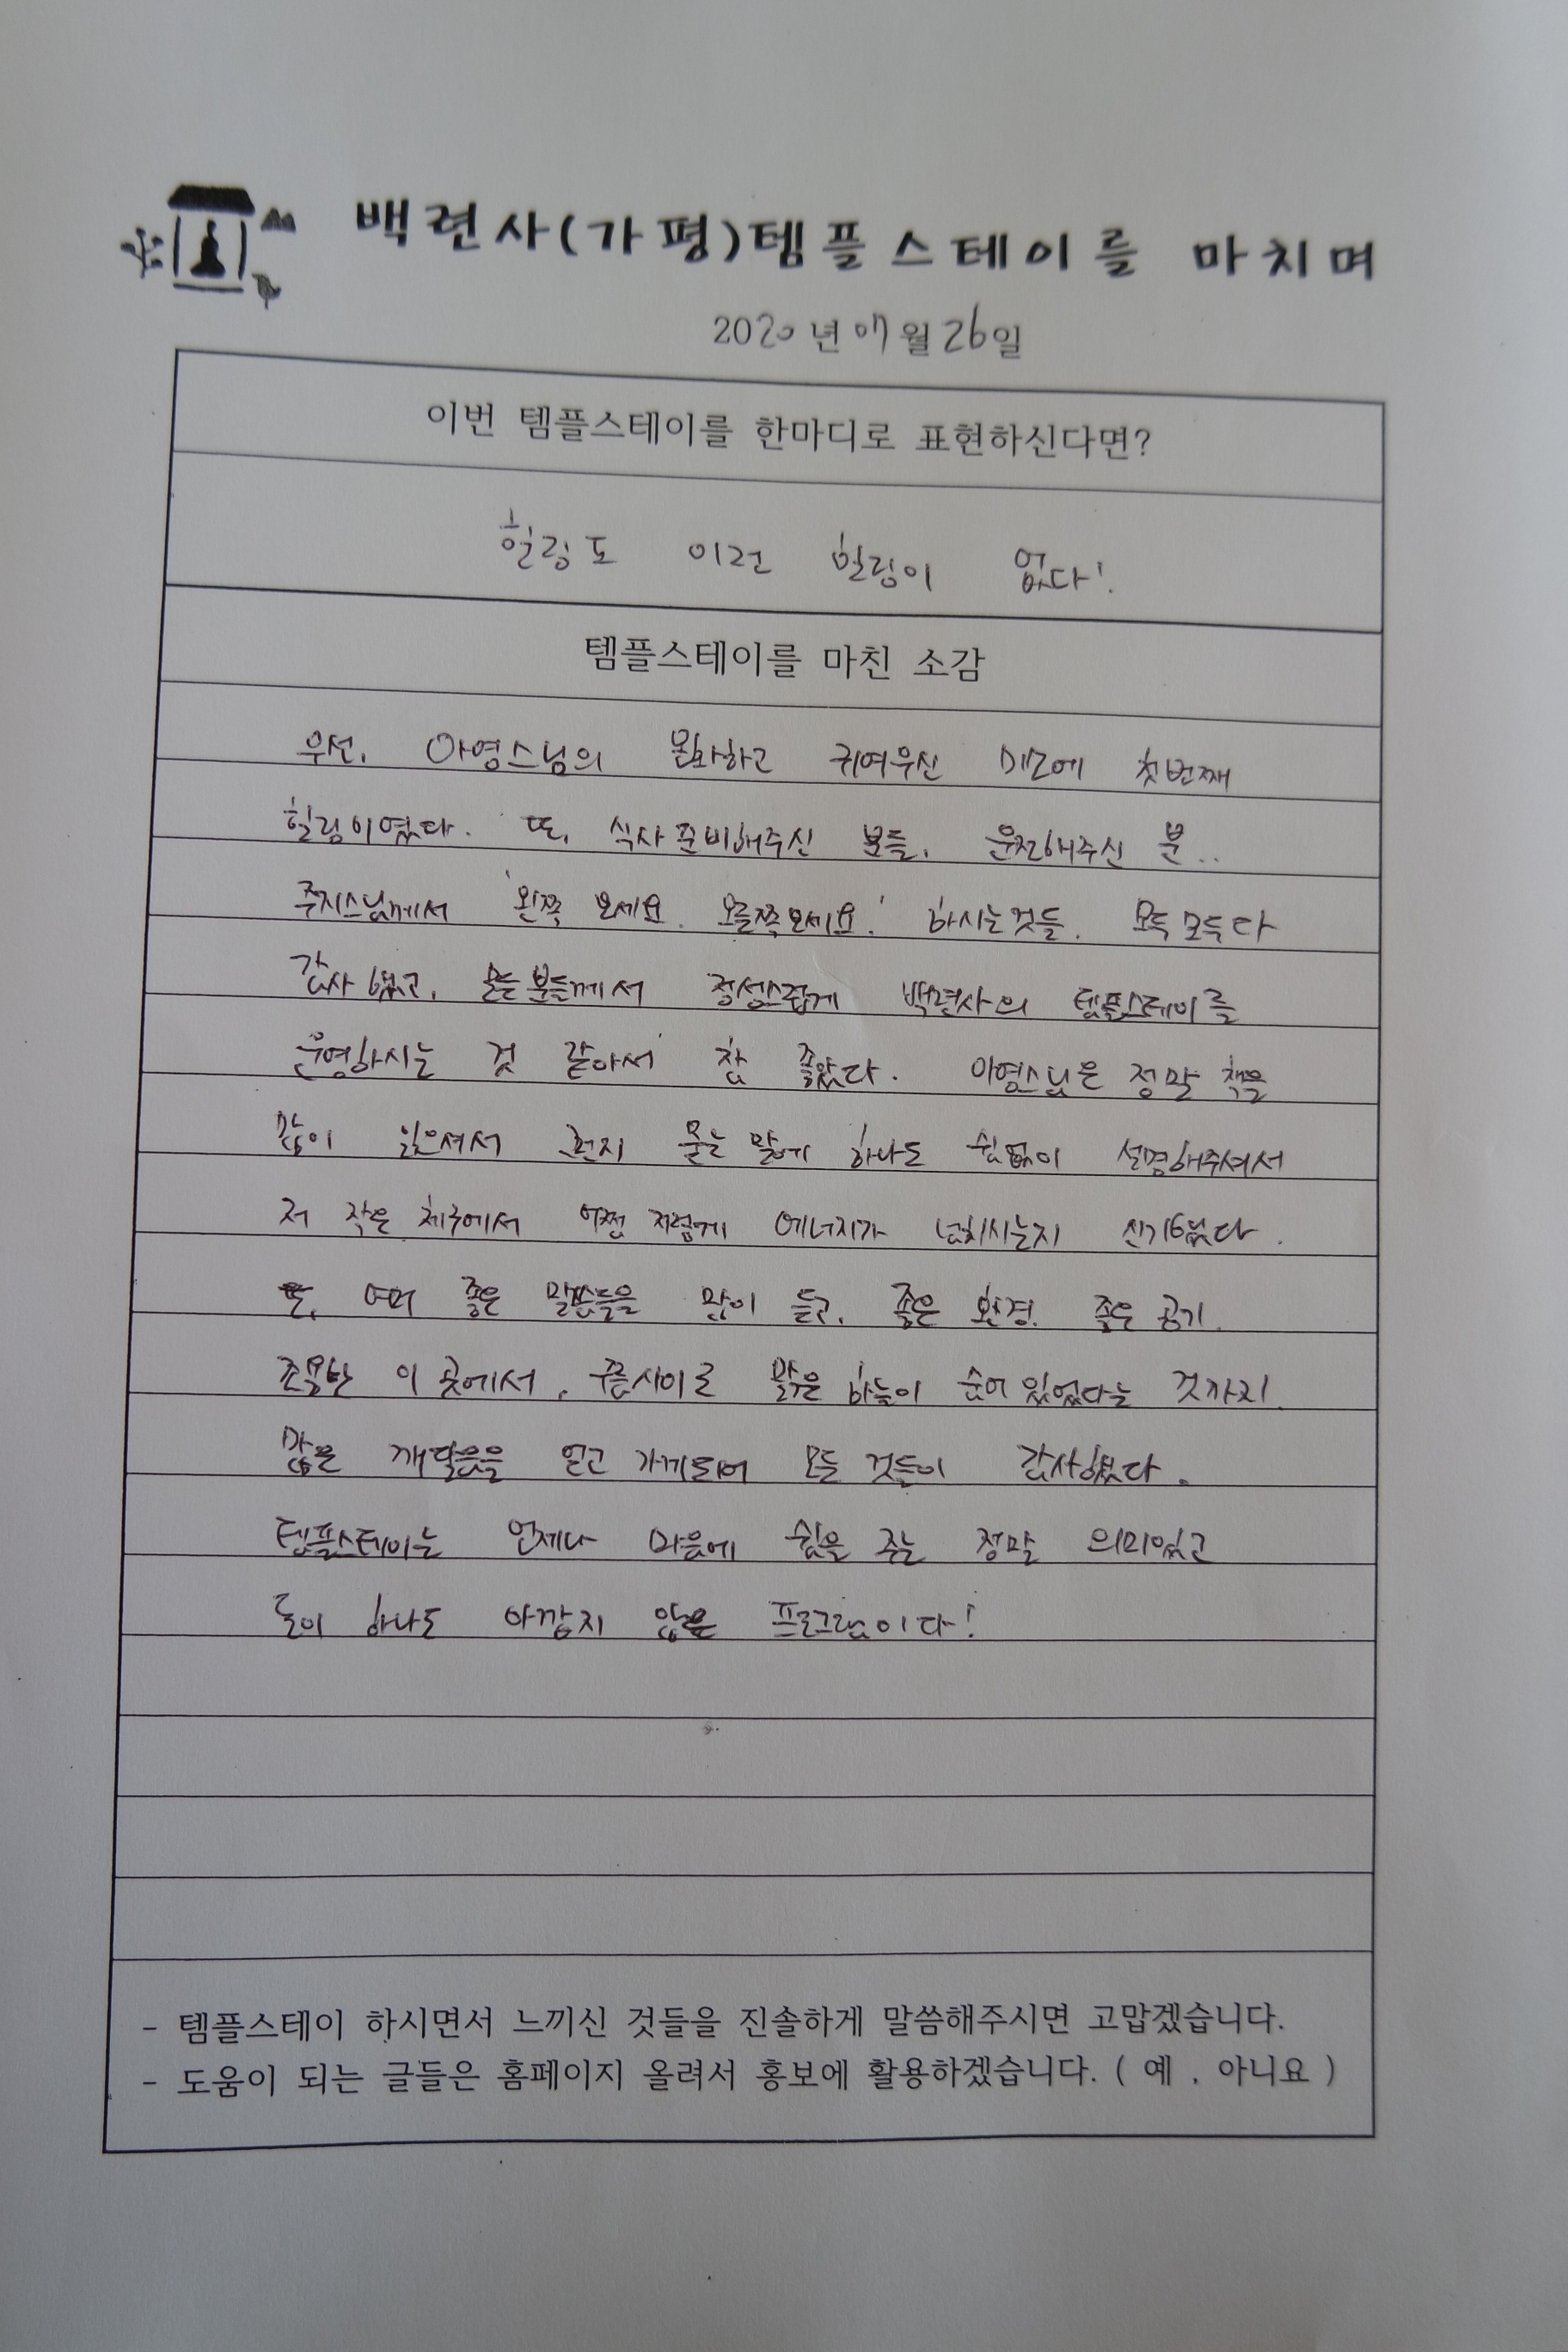 백련사(가평)템플스테이를 마치며
2020년 07월 26일
이번 템플스테이를 한마디로 표현하신다면?
힐링도 이런 힐링이 없다!
템플스테이를 마친 소감
우선, 아영스님의 온화하고 귀여우신 미소에 첫번째
힐링이였다. 또, 식사준비해주신 분들, 운전해주신 분..
주지스님께서 '왼쪽 보세요. 오른쪽보세요.' 하시는것들. 모두 모두 다
감사했고, 모든분들께서 정성스럽게 백련사의 템플스테이를
운영하시는 것 같아서 참 좋았다. 아영스님은 정말 책을
많이 읽으셔서 그런지 묻는 말에 하나도 쉼없이 설명해주셔서
저 작은 체구에서 어쩜 저렇게 에너지가 넘치시는지 신기했다.
또, 여러 좋은 말씀들을 많이 듣고, 좋은 환경. 좋은 공기.
조용한 이 곳에서, 구름사이로 맑은 하늘이 숨어 있었다는 것까지
많은 깨달음을 얻고 가게되어 모든 것들이 감사했다.
템플스테이는 언제나 마음에 쉼을 주는 정말 의미있고
돈이 하나도 아깝지 않은 프로그램이다!
- 템플스테이 하시면서 느끼신 것들을 진솔하게 말씀해주시면 고맙겠습니다.
- 도움이 되는 글들은 홈페이지 올려서 홍보에 활용하겠습니다. ( 예 . 아니요 )